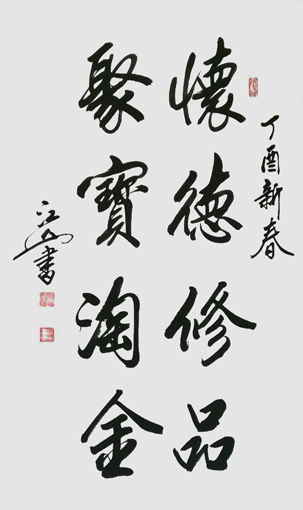 丁酉新春
懷德修品
聚寶淘金
江山書